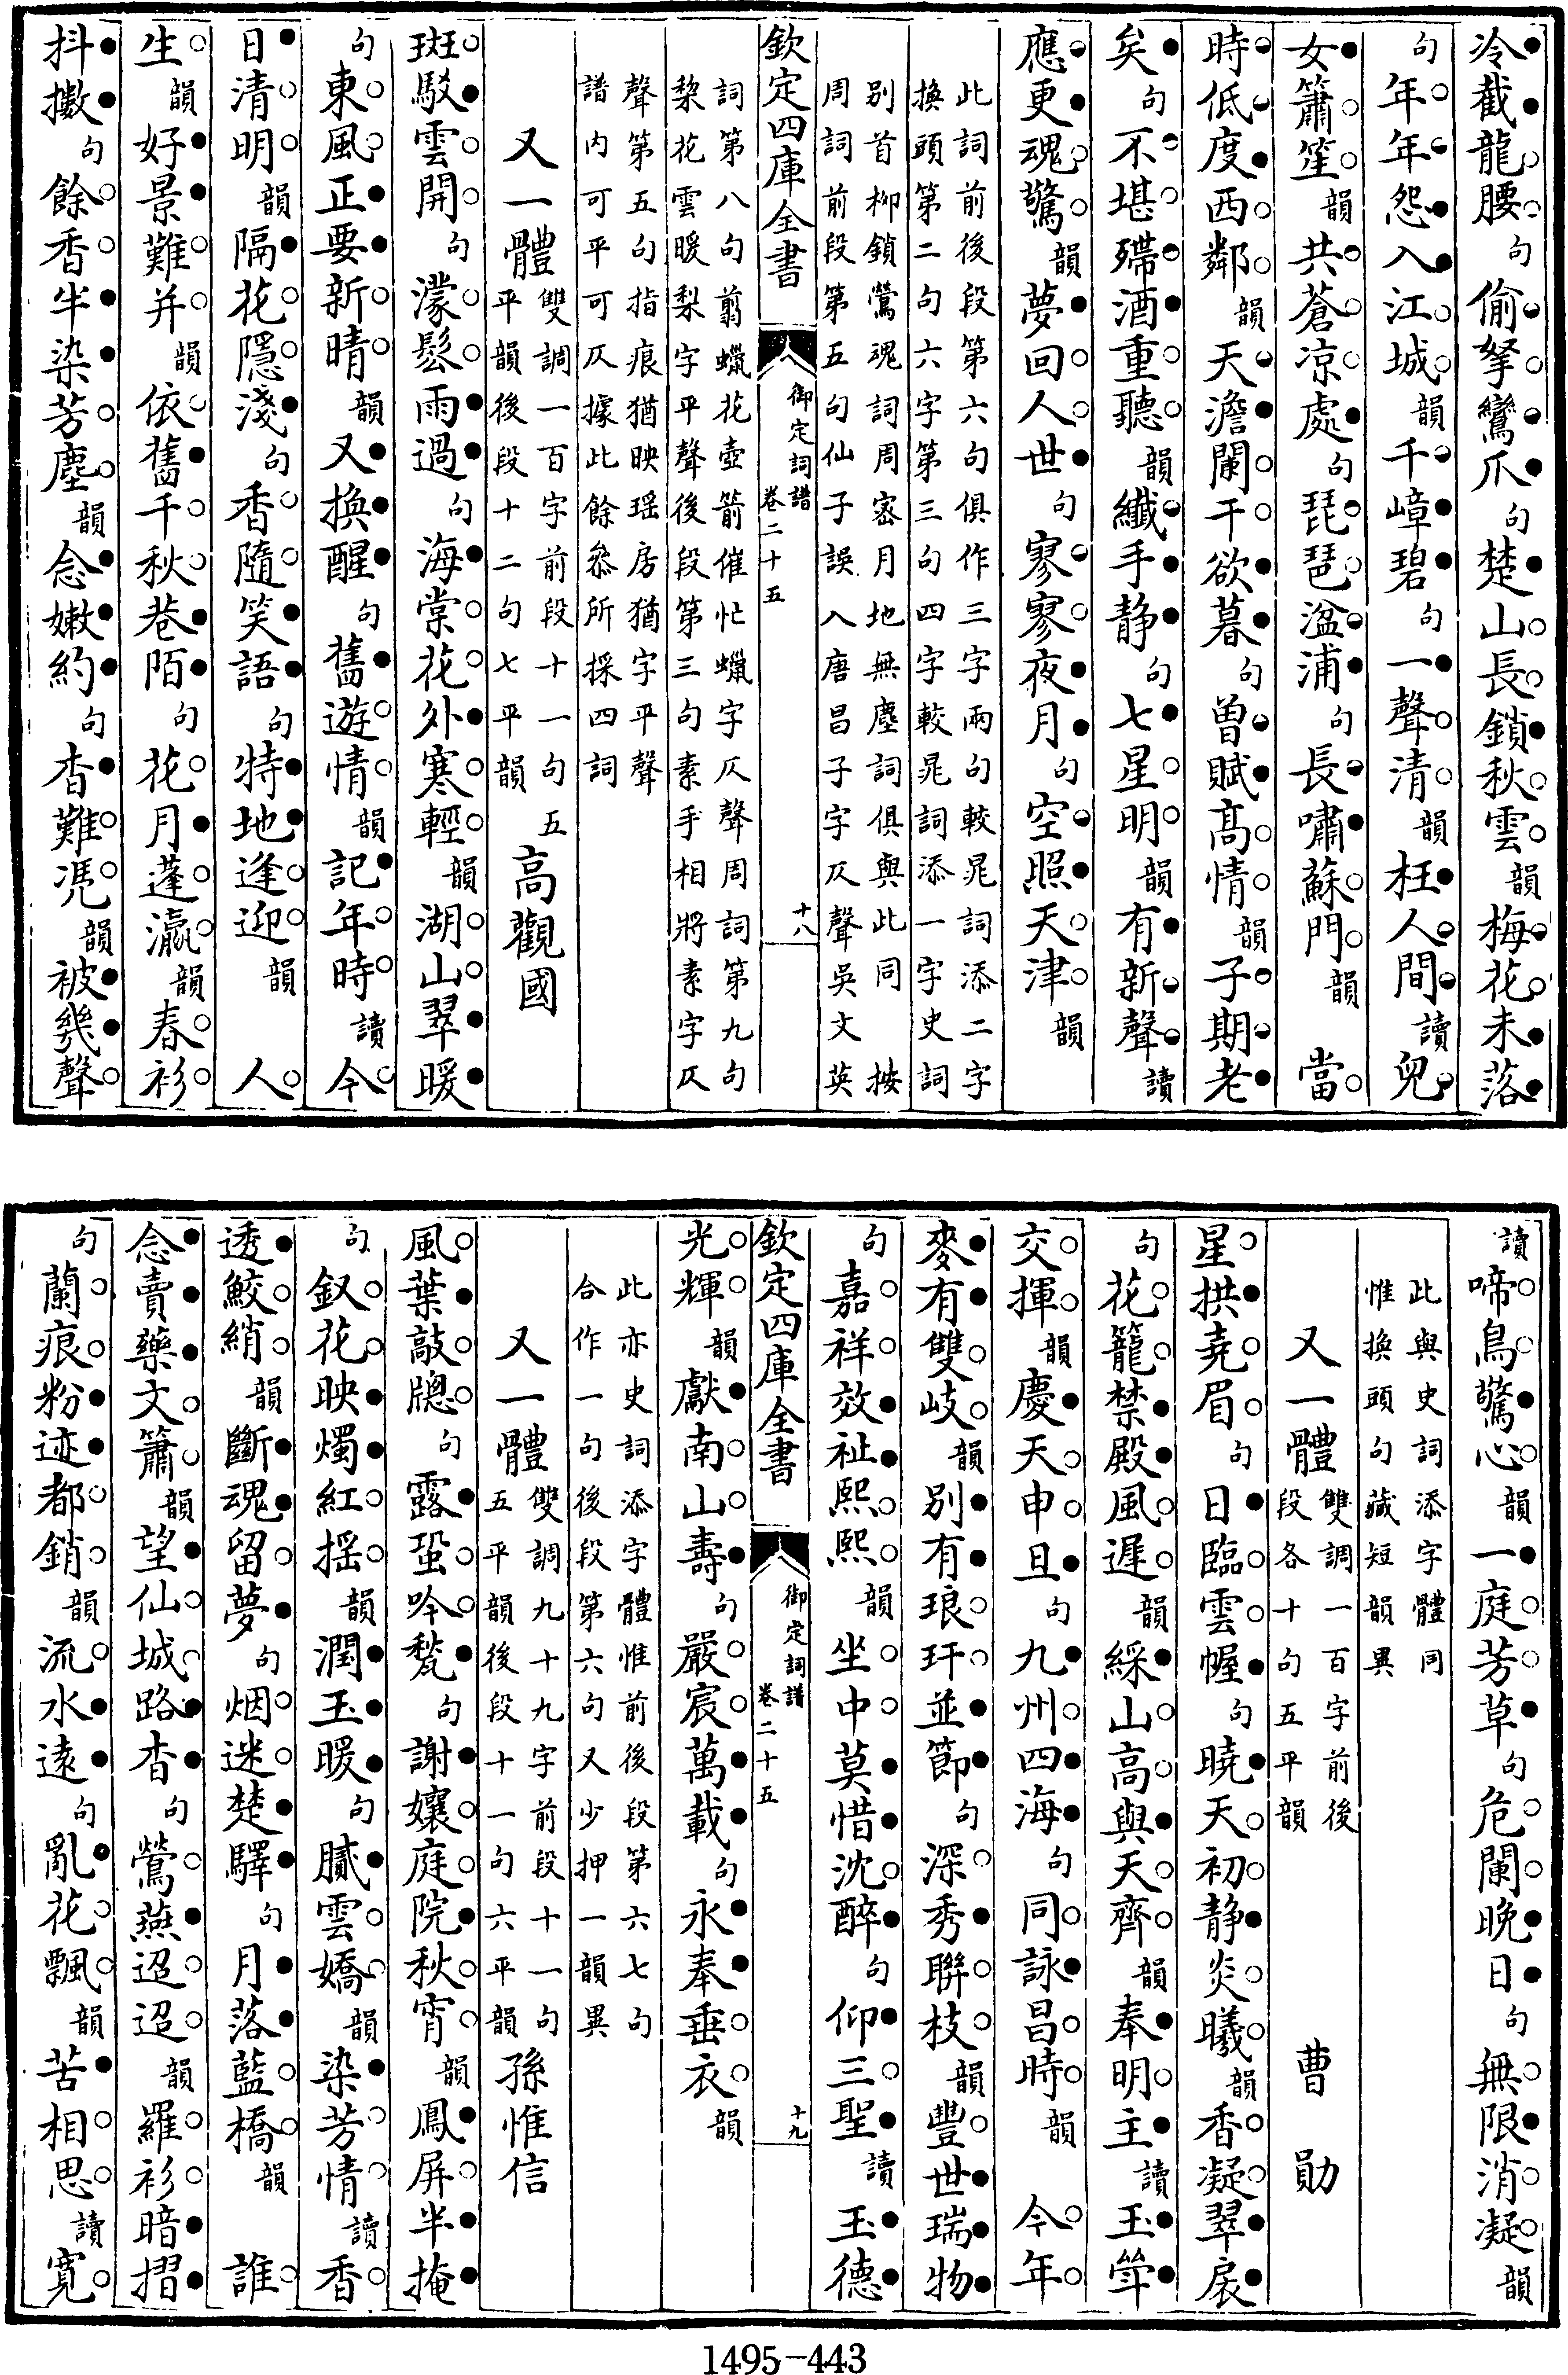 冷截龍腰句偷拏鸞爪句楚山長鎖秋雲韻梅花未落
句年年怨入江城韻千嶂碧句一聲清韻枉人間讀兒
女簫笙韻共蒼凉處句琵琶湓浦句長嘯蘇門韻當
時低度西鄰韻天澹闌干欲暮句曾賦高情韻子期老
矣句不堪殢酒重聽韻纖手静句七星明韻有新聲讀
應更魂驚韻夢回人世句寥寥夜月句空照天津韻
此詞前後段第六句俱作三字兩句較晁詞添二字
換頭第二句六字第三句四字較晁詞添一字史詞
别首柳鎖鶯魂詞周密月地無塵詞俱與此同　按
周詞前段第五句仙子誤入唐昌子字仄聲吳文英
欽定四庫全書　御定詞譜　卷二十五　十八
詞第八句翦蠟花壺箭催忙蠟字仄聲周詞第九句
棃花雲暖梨字平聲後段第三句素手相將素字仄
聲第五句指痕猶映瑶房猶字平聲
譜内可平可仄據此餘叅所採四詞
又一體雙調一百字前段十一句五
平韻後段十二句七平韻高觀國
斑駁雲開句濛鬆雨過句海棠花外寒輕韻湖山翠暖
句東風正要新晴韻又換醒句舊遊情韻記年時讀今
日清明韻隔花隱淺句香隨笑語句特地逢迎韻　人
生韻好景難并韻依舊千秋巷陌句花月蓬瀛韻春衫
抖擻句餘香半染芳塵韻念嫩約句杳難凴韻被幾聲
讀啼鳥驚心韻一庭芳草句危闌晚日句無限消凝韻
此與史詞添字體同
惟換頭句藏短韻異
又一體雙調一百字前後
段各十句五平韻曹　勛
星拱堯眉句日臨雲幄句曉天初静炎曦韻香凝翠扆
句花籠禁殿風遲韻綵山高與天齊韻奉明主讀玉斝
交揮韻慶天申旦句九州四海句同詠昌時韻　今年
麥有雙岐韻别有琅玕並節句深秀聯枝韻豐世瑞物
句嘉祥效祉熙熙韻坐中莫惜沈醉句仰三聖讀玉德
欽定四庫全書　御定詞譜　卷二十五　十九
光輝韻獻南山壽句嚴宸萬載句永奉垂衣韻
此亦史詞添字體惟前後段第六七句
合作一句後段第六句又少押一韻異
又一體雙調九十九字前段十一句
五平韻後段十一句六平韻孫惟信
風葉敲牕句露蛩吟甃句謝孃庭院秋宵韻鳳屏半掩
句釵花映燭紅摇韻潤玉暖句膩雲嬌韻染芳情讀香
透鮫綃韻斷魂留夢句烟迷楚驛句月落藍橋韻　誰
念賣藥文簫韻望仙城路杳句鶯燕迢迢韻羅衫暗摺
句蘭痕粉迹都銷韻流水遠句亂花飄韻苦相思讀寛
1495-443